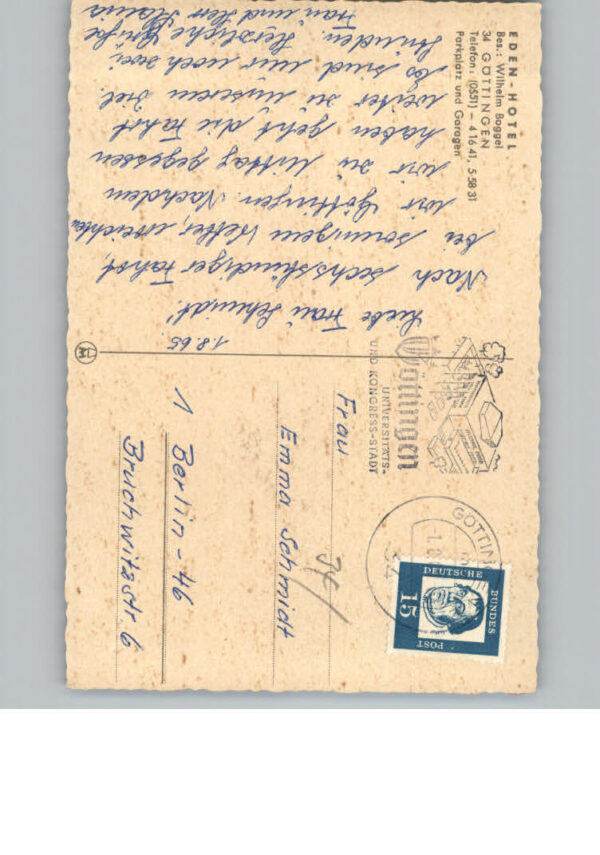 EDEN-HOTEL
Bes.: Wilhelm Boggel
34 GÖTTINGEN
Telefon: (0551) – 41641, 55831
Parkplatz und Garagen
1.8.65
Liebe Frau Schmidt!
Nach sechsstündiger Fahrt,
bei sonnigem Wetter, erreichten
wir Göttingen. Nachdem
wir zu Mittag gegessen
haben geht die Fahrt
weiter zu unserem Ziel.
Es sind nur noch zwei
Stunden. Herzliche Grüße
Frau und Herr
Göttingen
UNIVERSITÄTS-
UND KONGRESS-STADT
GÖTTING
34
1.8
DEUTSCHE
BUNDES
POST
15
Frau
Emma Schmidt
1 Berlin-46
Bruchwitzstr. 6